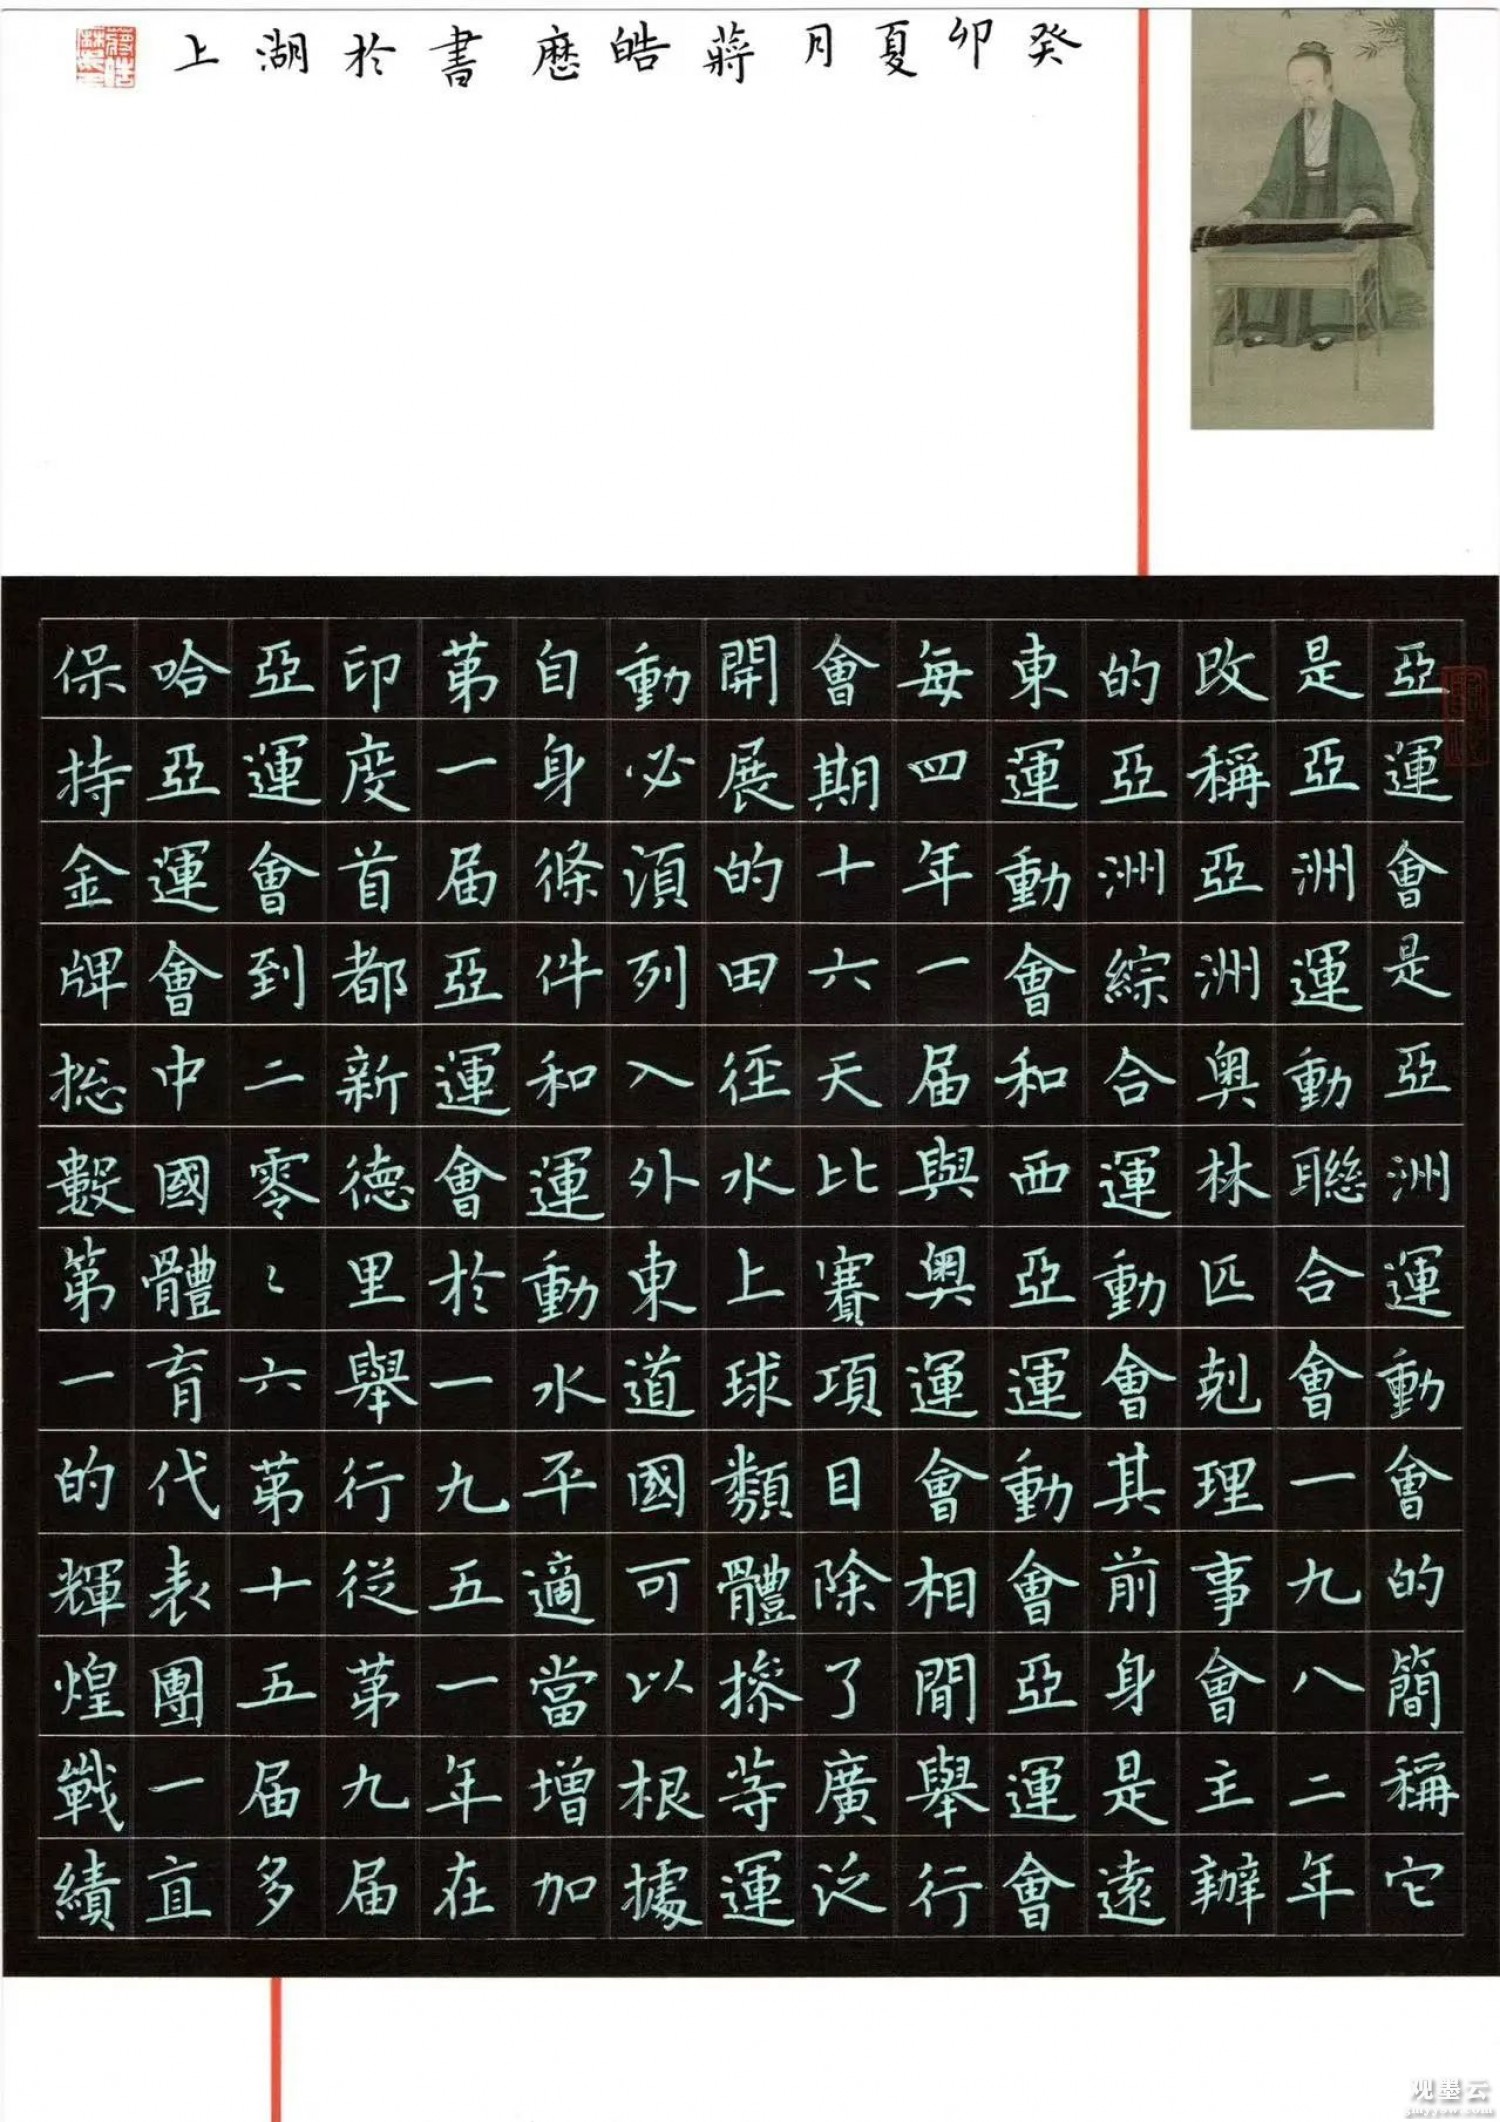 癸卯夏月蔣皓書於湖上
亞運會是亞洲運動會的簡稱它
是亞洲運動聯合會一九八二年
改稱亞洲奧林匹剋理事會主辦
的亞洲綜合運動會其前身是遠
東運動會和西亞運動會亞運會
每四年一届與奧運會相間舉行
會期十六天比賽項目除了廣泛
開展的田徑水上球類體操等運
動必須列入外東道國可以根據
自身條件和運動水平適當增加
第一届亞運會於一九五一年在
印度首都新德里舉行從第九届
亞運會到二零〻六第十五届多
哈亞運會中國體育代表團一直
保持金牌捴數第一的輝煌戰績
观墨云